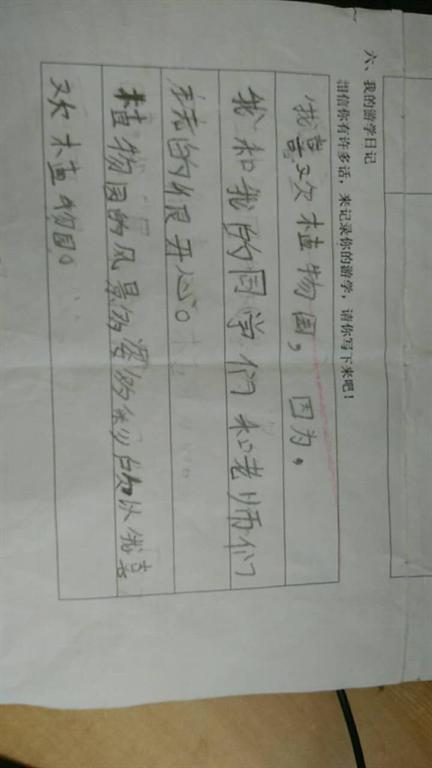 六、我的游学日记
相信你有许多话，来记录你的游学，请你写下来吧！
我喜欢植物园，因为，
我和我的同学们和老师们
玩的很开心。
植物园的风景以我喜
欢植物园。